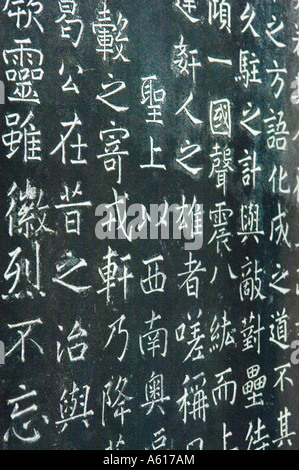 之方語化成之道不其
久駐之計與敵對壘待
傾一國聲震八紘而上
奸人之雄者嗟稱
聖上以西南奧
轂之寄戎軒乃降
葛公在昔之治與
靈雖徽烈不忘
alamy
A617AM